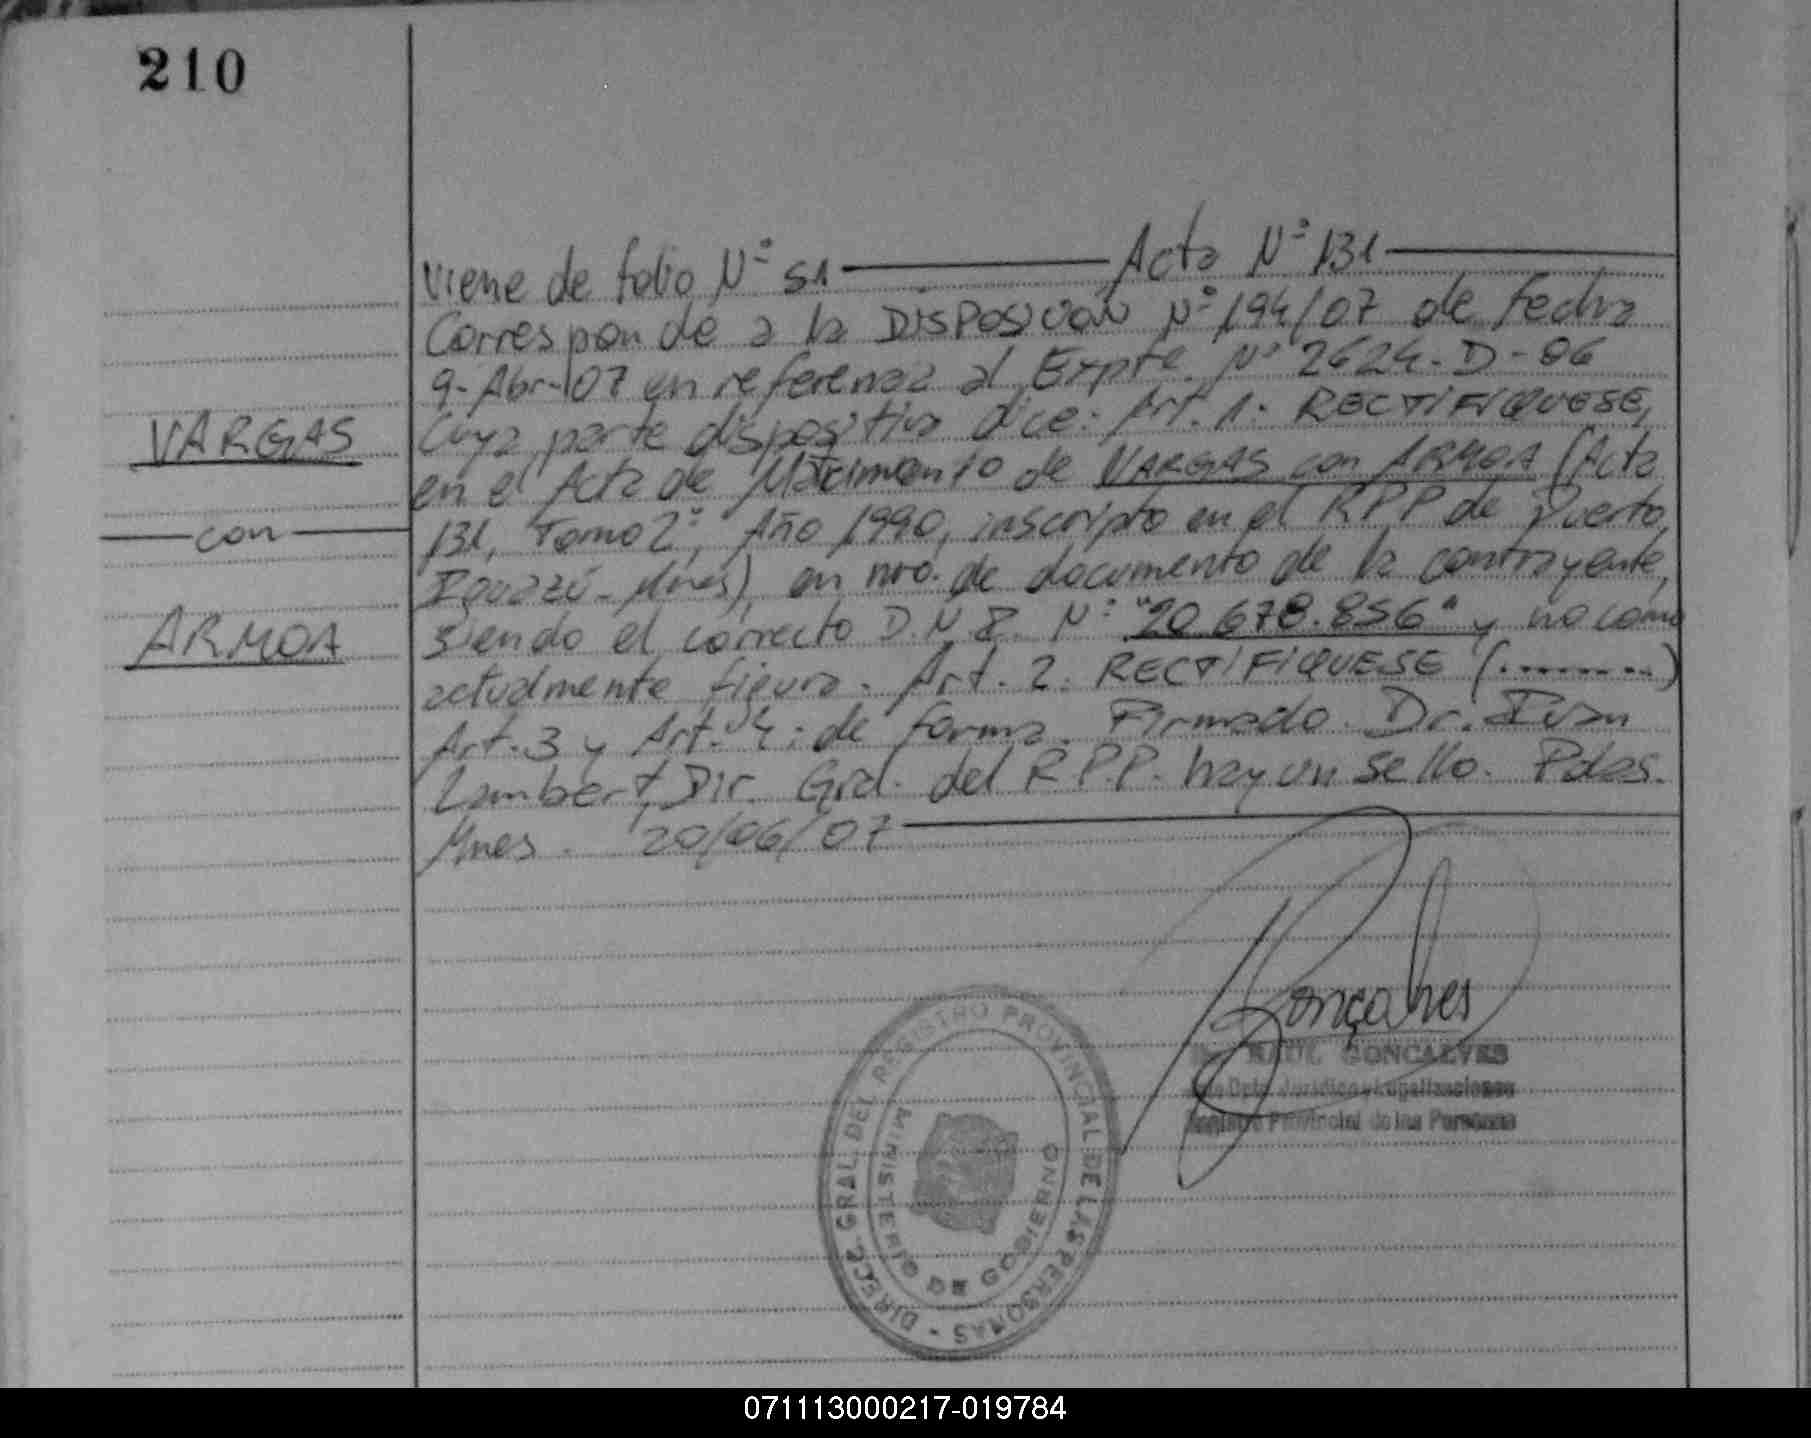 210
Viene de folio Nº 51 ——— Acta Nº 131 ———
Corresponde a la DISPOSICION Nº 194/07 de fecha
9-Abr-07 en referencia al Expte. Nº 2624-D-06
VARGAS
Cuya parte dispositiva dice: Art. 1: RECTIFIQUESE,
en el Acta de Matrimonio de VARGAS con ARMOA (Acta
— con —
131, Tomo 2º, Año 1990, inscripto en el RPP de Puerto
Iguazú - Mnes), en nro. de documento de la contrayente,
ARMOA
siendo el correcto D.N.I. Nº "20.678.856" y no como
actualmente figura. Art. 2: RECTIFIQUESE (.........)
Art. 3 y Art. 4: de forma. Firmado Dr. Ivan
Lambert, Dir. Gral. del R.P.P. hay un sello. Pdas.
Mnes. 20/06/07 ———
Gonçalves
RAUL GONCALVES
Dpto. Jurídico y Legalizaciones
Registro Provincial de las Personas
DIRECC. GRAL. DEL REGISTRO PROVINCIAL DE LAS PERSONAS -
MINISTERIO DE GOBIERNO
071113000217-019784